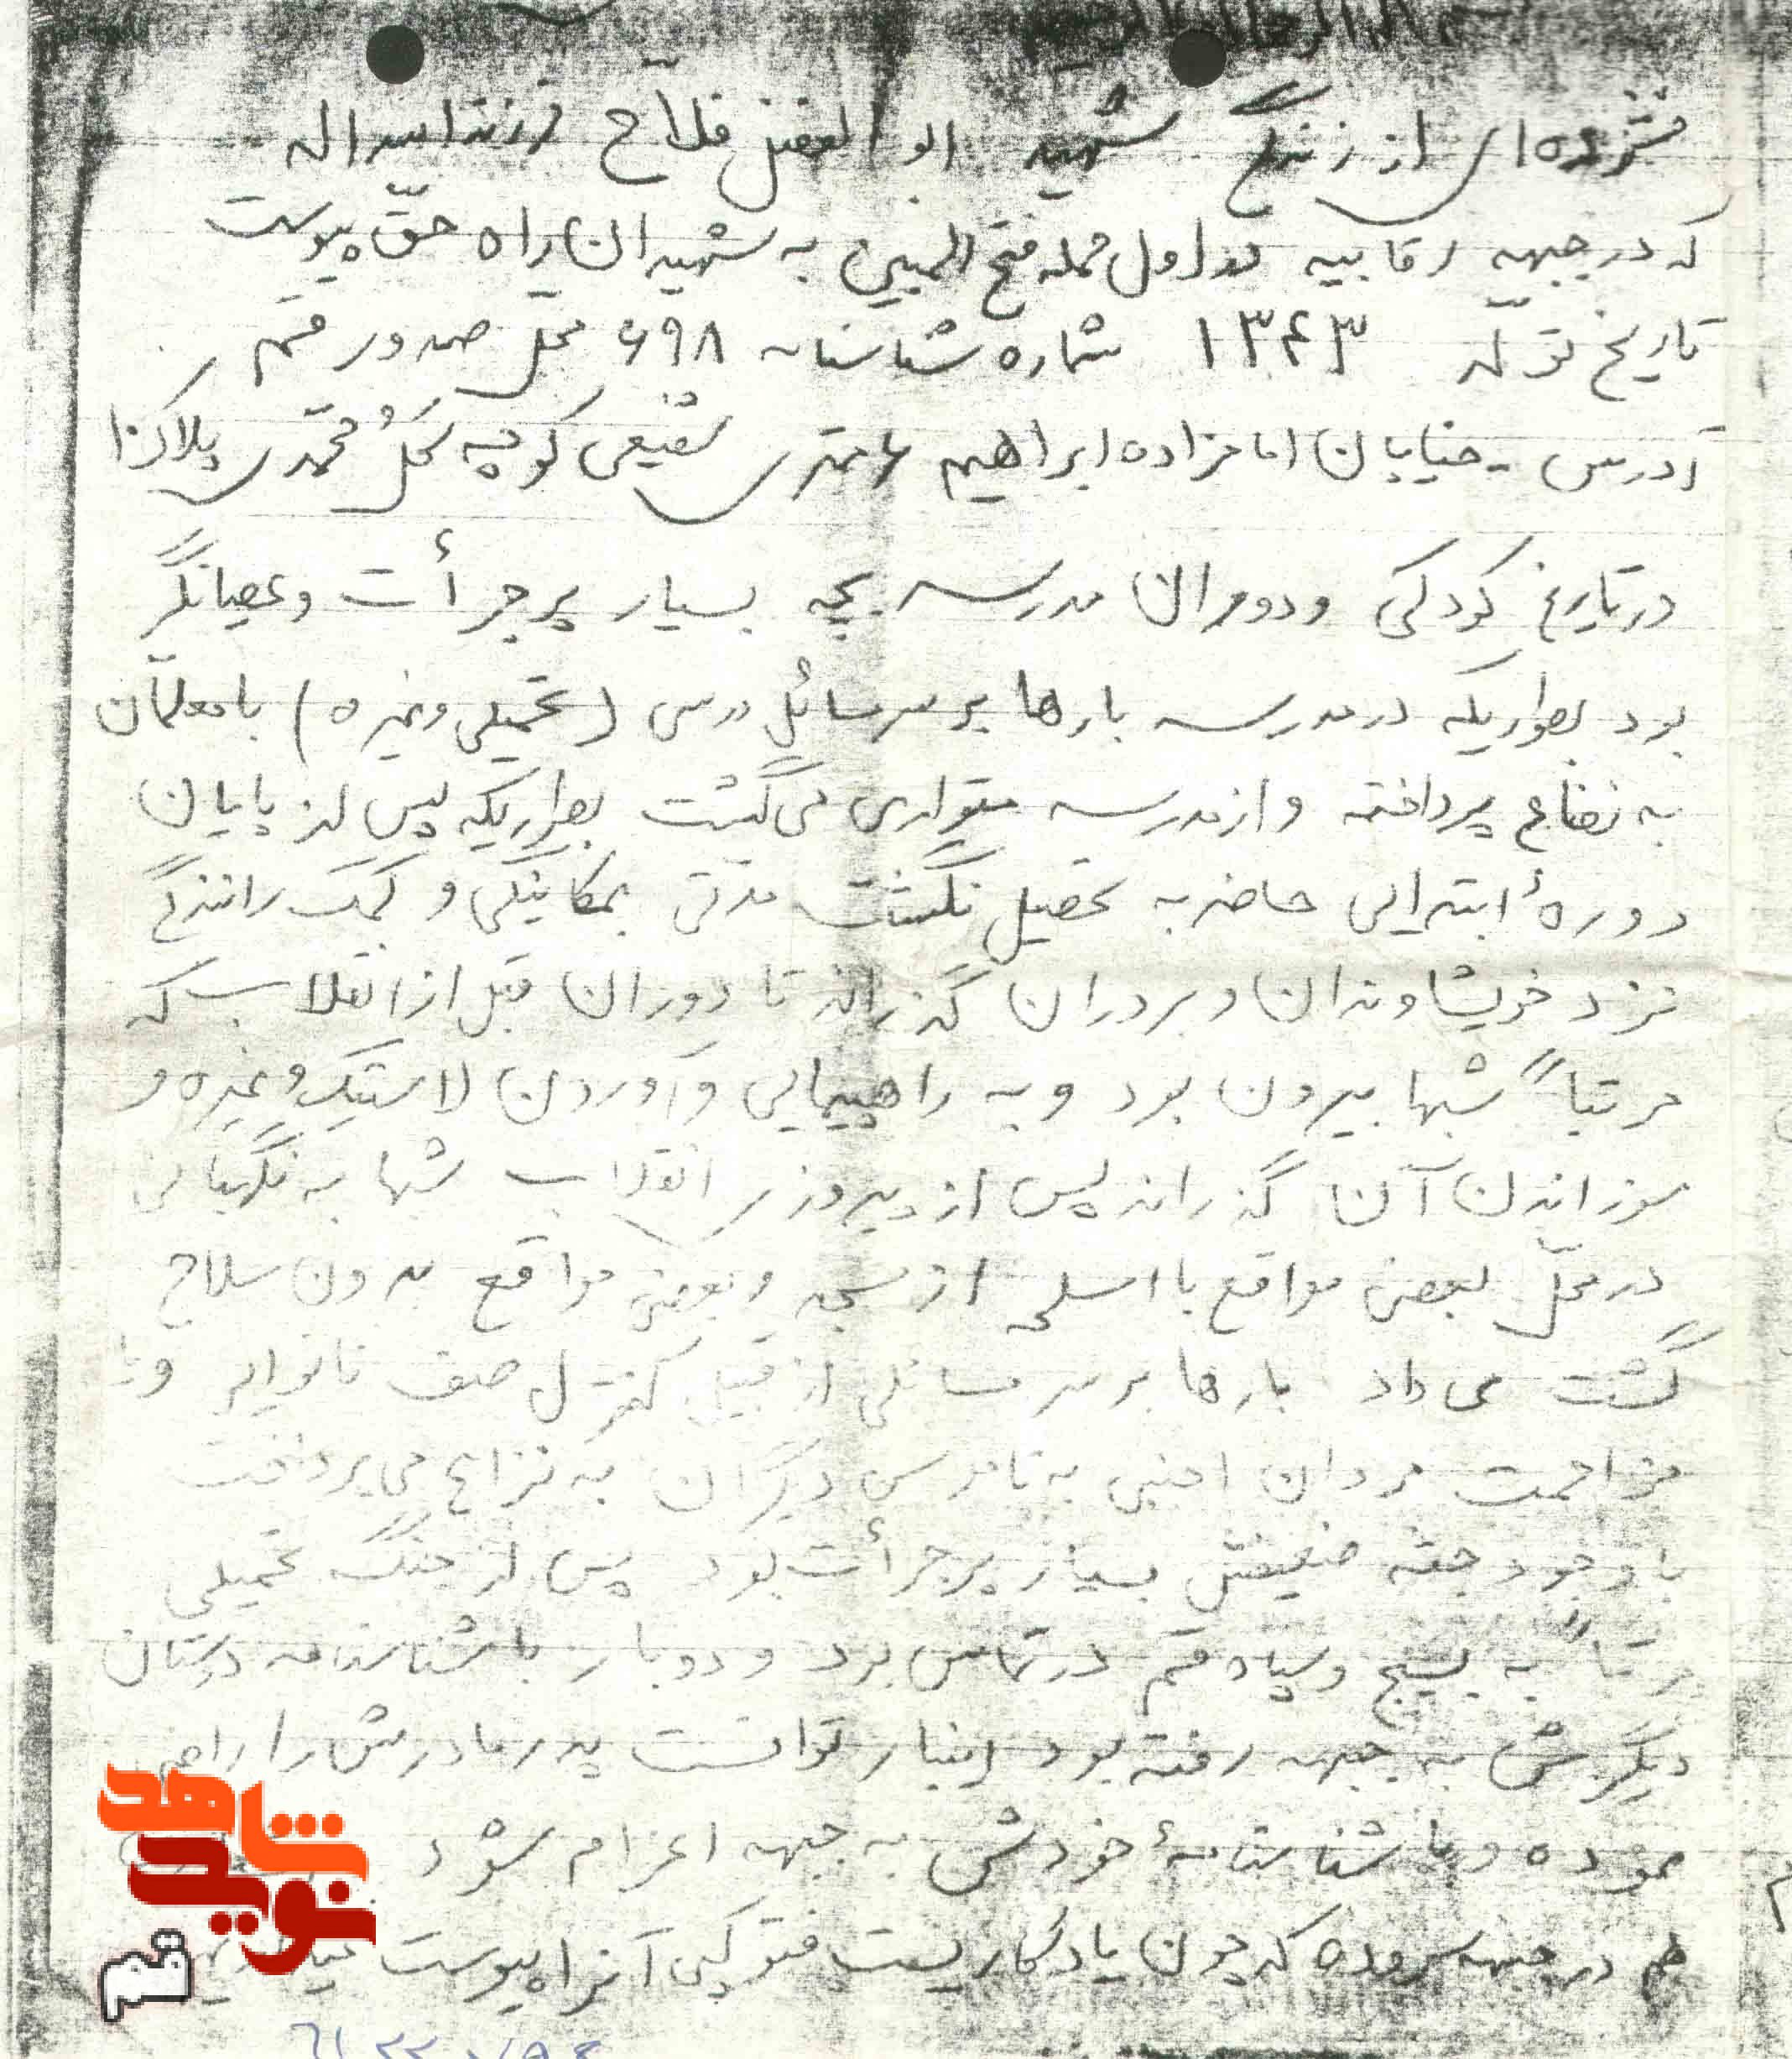 فشرده‌ای از زندگی شهید ابوالفضل فلّاح فرزند اسداله
که در جبهه رقابیه اول حمله فتح المبین به شهیدان راه حقّ پیوست
تاریخ تولّد ۱۳۴۳ شماره شناسنامه ۶۹۸ محلّ صدور قم
آدرس - خیابان امامزاده ابراهیم ۶ متری شفیعی کوچه گل محمّدی پلاک
در تاریخ کودکی و دوران مدرسه بچه بسیار پر جرأت و عصیانگر
بود بطوریکه در مدرسه بارها بر سر مسائل درس (تحمیلی و غیره) با معلمّان
به پرداخته و از مدرسه متواری می گشت بطوریکه پس از پایان
دورهٔ ابتدایی حاضر به تحصیل نگشت مدّتی بمکانیکی و کمک رانندگی
نزد خویشاوندان و بردران گذراند تا دوران قبل از انقلاب که
مرتباً شبها بیرون بود و به راهپیمایی و آوردن لاستیک و غیره و
سوزاندن آن گذراند پس از پیروزی انقلاب شبها به نگهبانی
در محلّ بعضی مواقع با اسلحه از مسجد و بعضی مواقع بدون سلاح
گشت می داد بارها بر سر مسائلی از قبیل کنترل صف نانوایی و یا
مزاحمت مردان اجنبی به ناموس دیگران به نزاع می پرداخت
با وجود جثه ضعیفش بسیار پر جرأت بود پس از جنگ تحمیلی
مرتباً به بسیج و سپاه قم در تماس بود و دوبار با شناسنامه دوستان
دیگرش به جبهه رفته بود اینبار توانست پدر و مادرش را راضی
نموده و با شناسنامهٔ خودش به جبهه اعزام شود
هم در جبهه سروده که چون یادگاریست فتوکپی آنرا پیوست
شاهد
نوید
قم